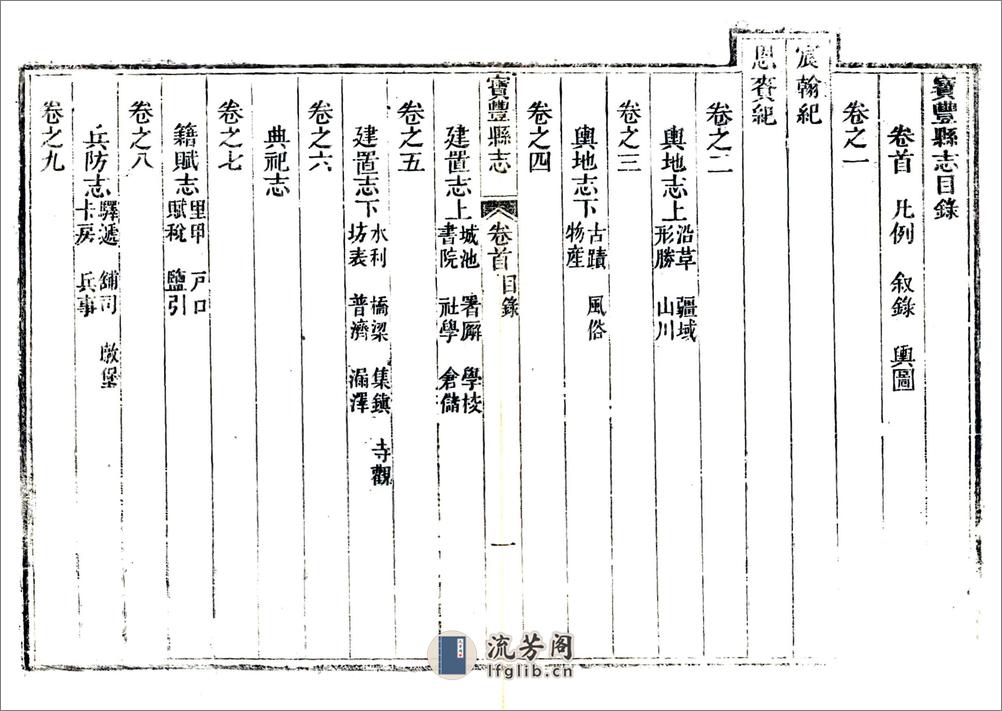 寶豐縣志目錄
卷首 凡例 叙錄 輿圖
卷之一
宸翰紀
恩賚紀
卷之二
輿地志上 沿革 疆域 形勝 山川
卷之三
輿地志下 古蹟 風俗 物産
卷之四
寶豐縣志 卷首 目錄 一
建置志上 城池 署廨 學校 書院 社學 倉儲
卷之五
建置志下 水利 橋梁 集鎮 寺觀 坊表 普濟 漏澤
卷之六
典祀志
卷之七
籍賦志 里甲 戸口 賦稅 鹽引
卷之八
兵防志 驛遞 舖司 墩堡 卡房 兵事
卷之九
流芳阁
lfglib.cn